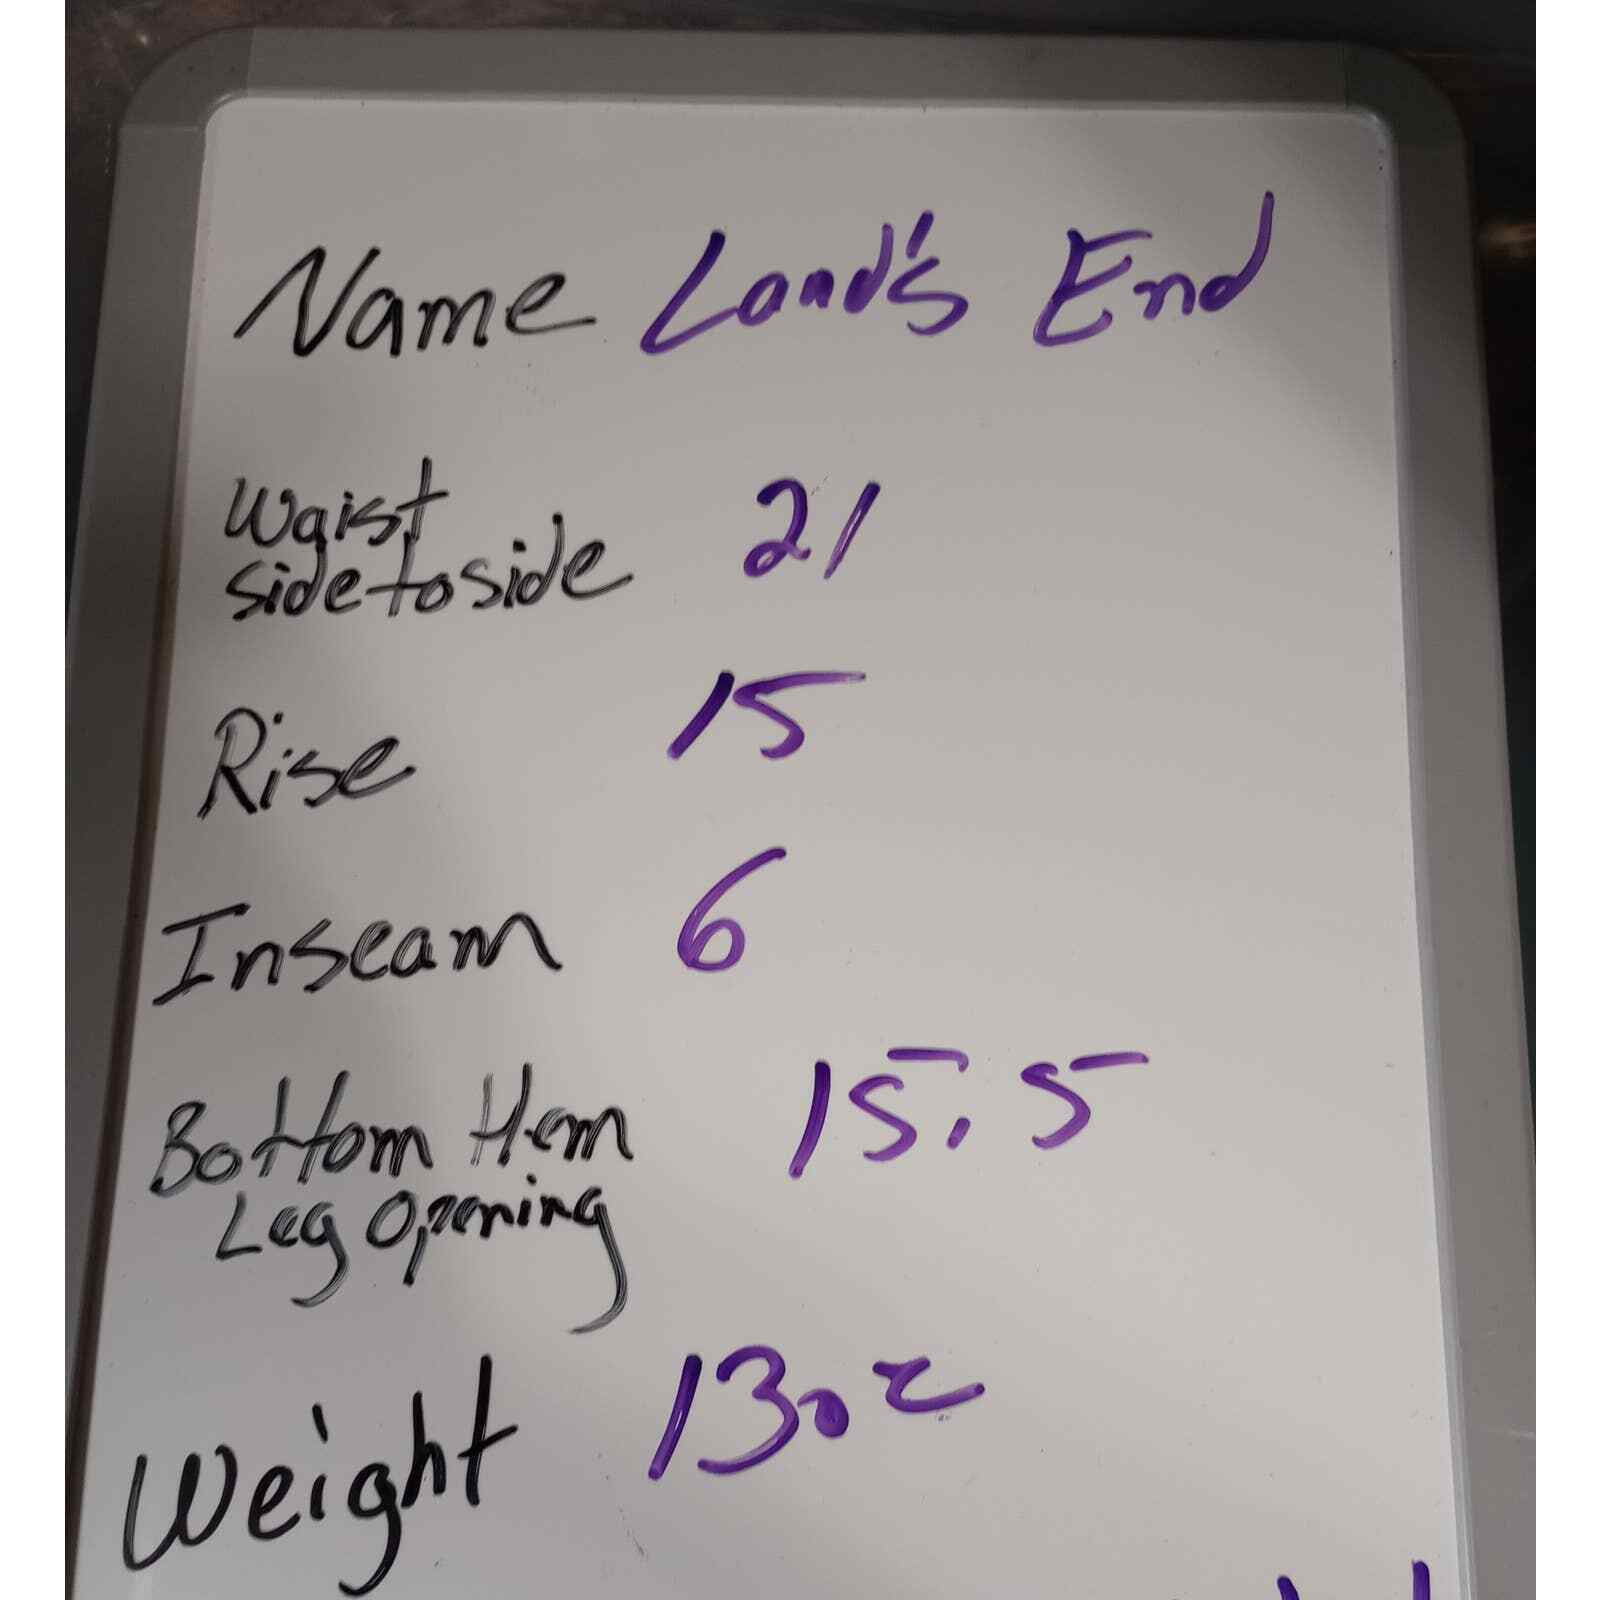 Name Land's End
Waist
side to side 21
Rise 15
Inseam 6
Bottom Hem 15.5
Leg Opening
Weight 13oz